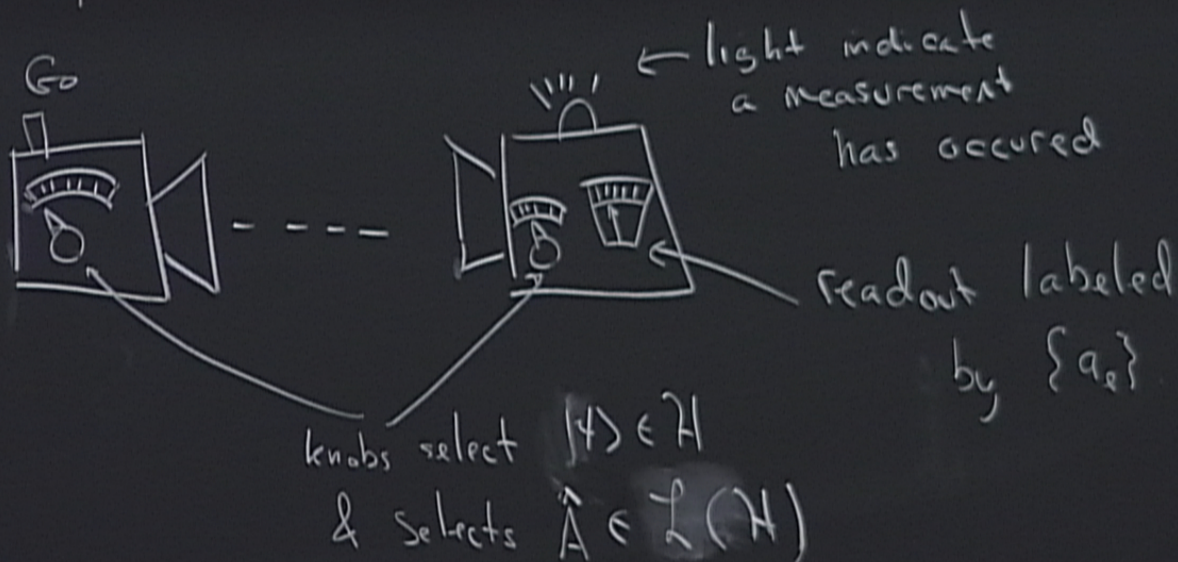 Go
← light indicate
a measurement
has occured
readout labeled
by {aₑ}
knobs select |ψ> ∈ H
& selects Â ∈ L(H)